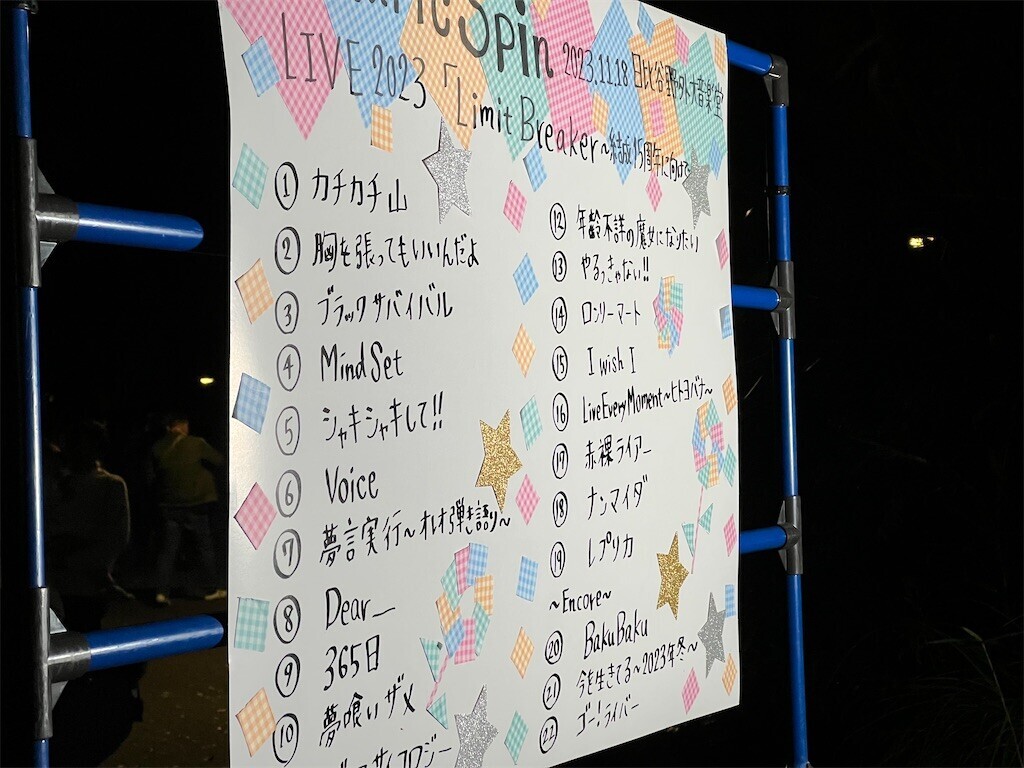 Spin
LIVE 2023「Limit Breaker~結成15周年に向けて
2023.11.18 日比谷野外大音楽堂
① カチカチ山
② 胸を張ってもいいんだよ
③ ブラックサバイバル
④ MindSet
⑤ シャキシャキして!!
⑥ Voice
⑦ 夢言実行~オレオ弾き語り~
⑧ Dear_
⑨ 365日
⑩ 夢喰いザメ
サイコロジー
⑫ 年齢不詳の魔女になりたい
⑬ やるっきゃない!!
⑭ ロンリーマート
⑮ I wish I
⑯ LiveEveryMoment~ヒトヨバナ~
⑰ 赤裸ライアー
⑱ ナンマイダ
⑲ レプリカ
~Encore~
⑳ BakuBaku
㉑ 今を生きてる~2023年冬~
㉒ ゴー!ライバー